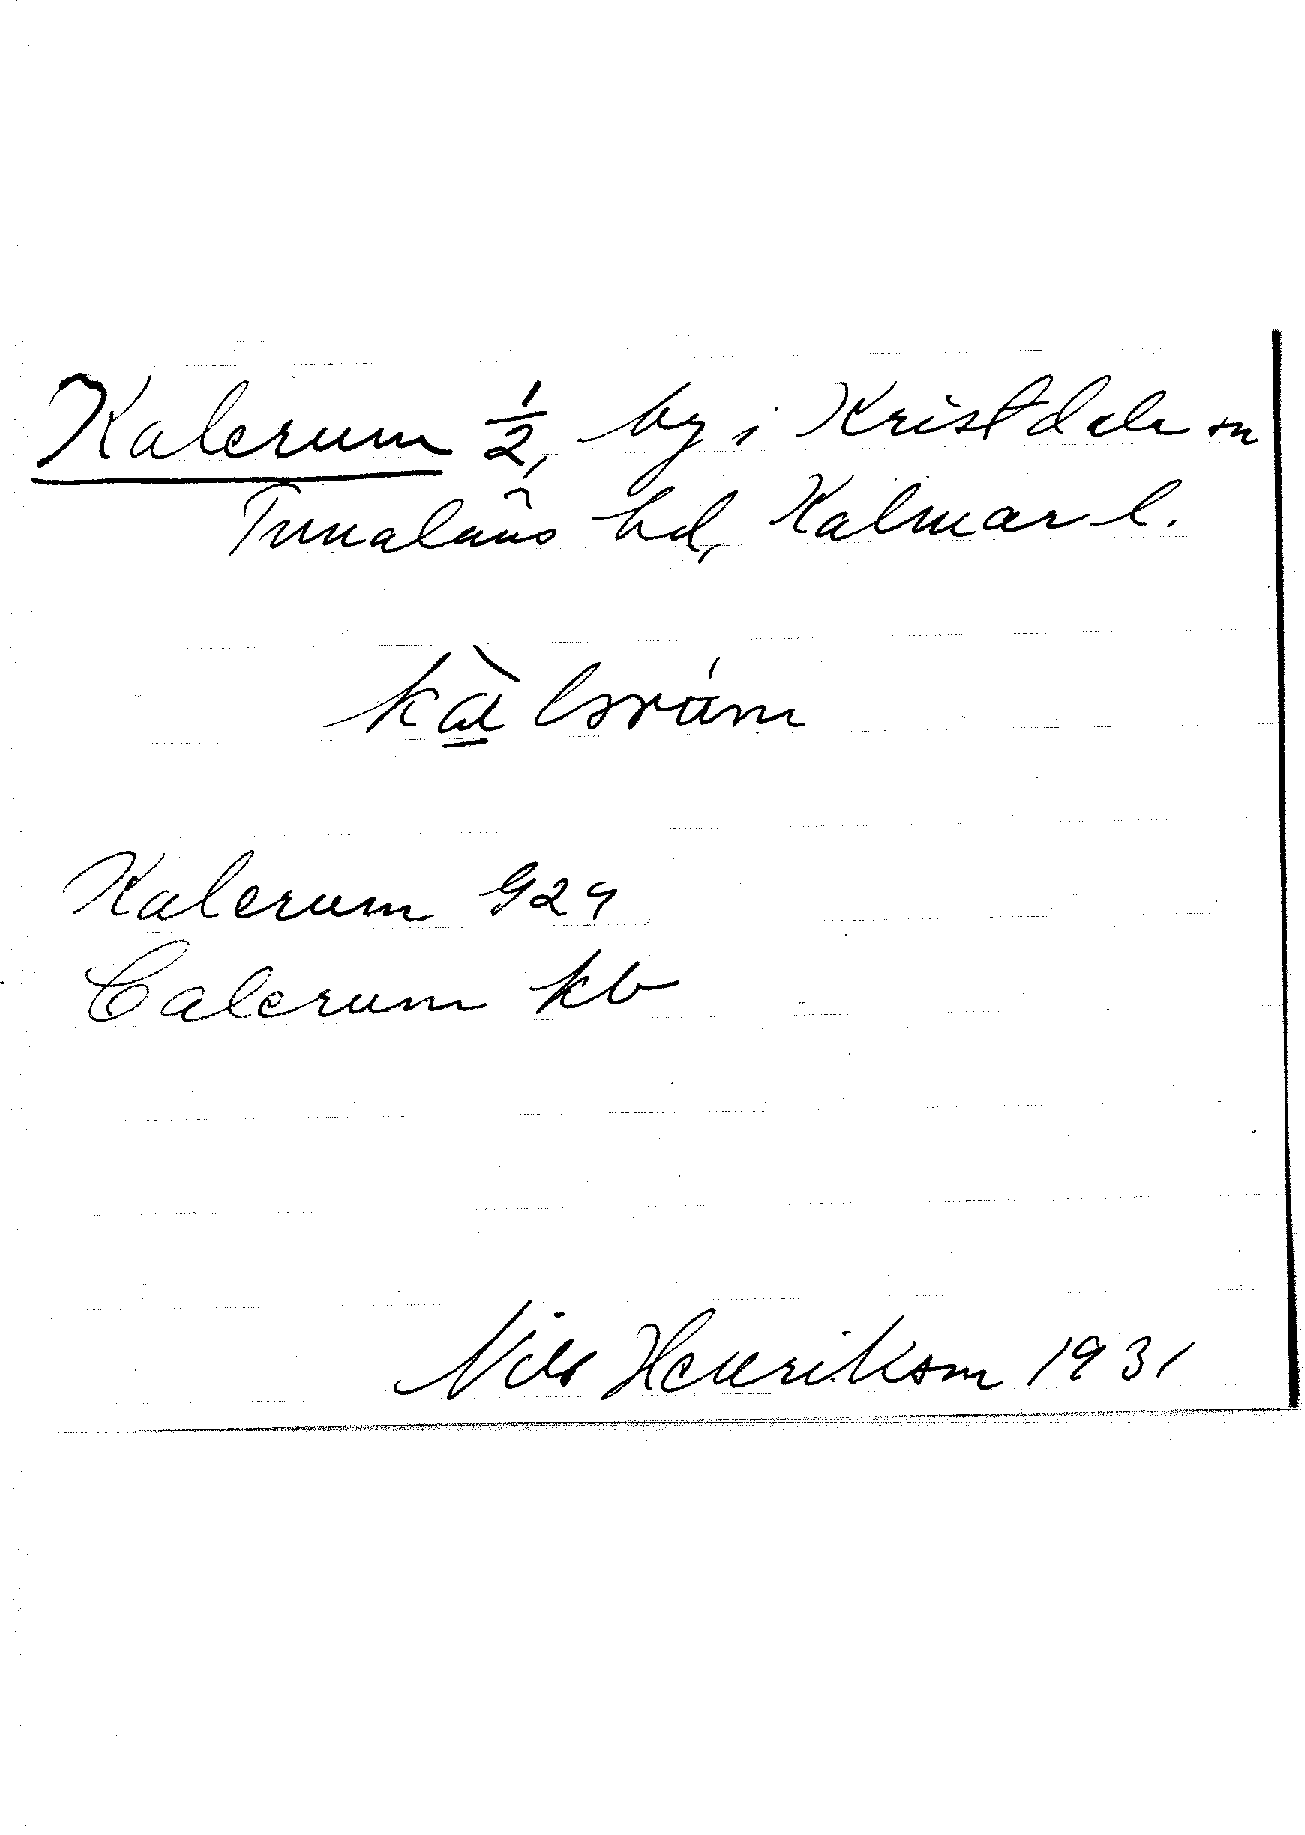 Kalerum ½, by i Kristdala sn
Tunaläns hd, Kalmar l.
Kalerum G29
Calerum kb
Nils Henrikson 1931